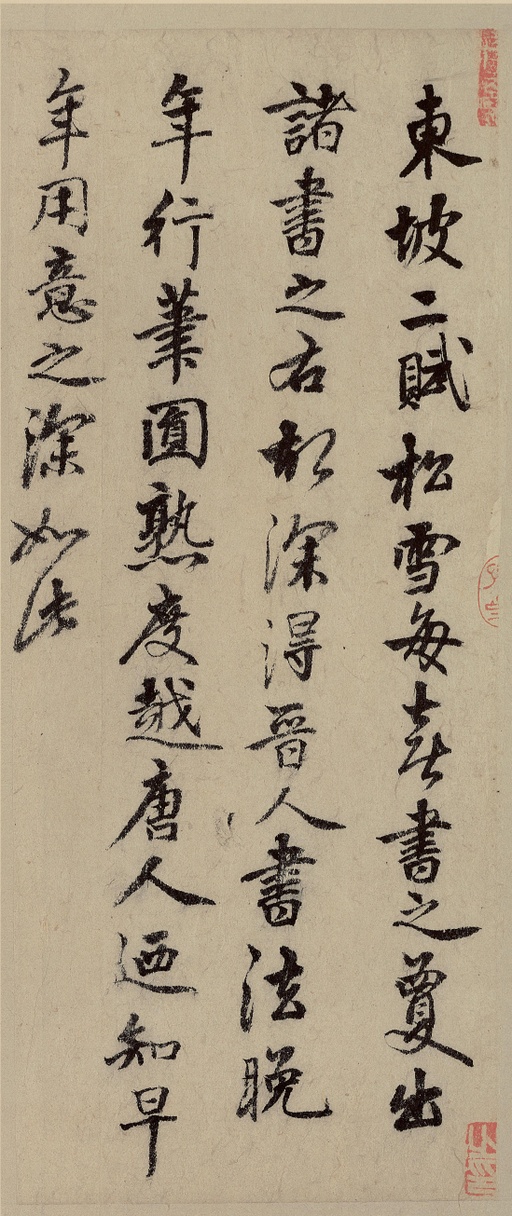 東坡二賦松雪每喜書之夐出
諸書之右初深得晉人書法晚
年行筆圓熟度越唐人迺知早
年用意之深如此